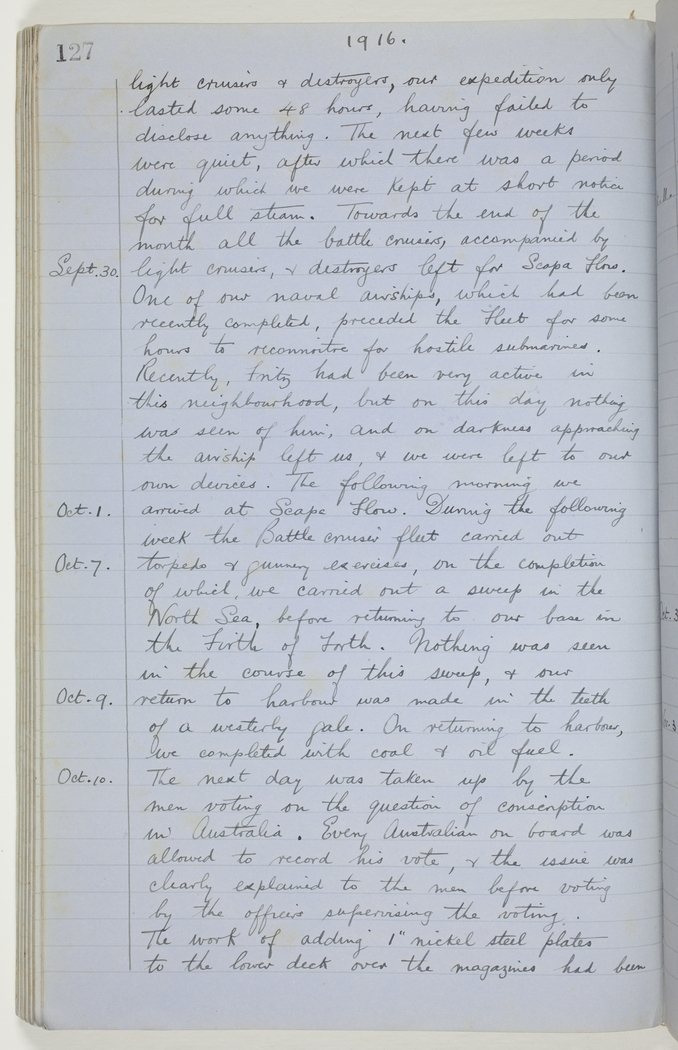 127
1916.
light cruisers & destroyers, our expedition only
lasted some 48 hours, having failed to
disclose anything. The next few weeks
were quiet, after which there was a period
during which we were kept at short notice
for full steam. Towards the end of the
month all the battle cruisers, accompanied by
Sept. 30. light cruisers, & destroyers left for Scapa Flow.
One of our naval airships, which had been
recently completed, preceded the Fleet for some
hours to reconnoitre for hostile submarines.
Recently, Fritz had been very active in
this neighbourhood, but on this day nothing
was seen of him, and on darkness approaching
the airship left us, & we were left to our
own devices. The following morning we
Oct. 1. arrived at Scapa Flow. During the following
week the Battle cruiser fleet carried out
Oct. 7. torpedo & gunnery exercises, on the completion
of which, we carried out a sweep in the
North Sea, before returning to our base in
the Firth of Forth. Nothing was seen
in the course of this sweep, & our
Oct. 9. return to harbour was made in the teeth
of a westerly gale. On returning to harbour,
we completed with coal & oil fuel.
Oct. 10. The next day was taken up by the
men voting on the question of conscription
in Australia. Every Australian on board was
allowed to record his vote, & the issue was
clearly explained to the men before voting
by the officers supervising the voting.
The work of adding 1" nickel steel plates
to the lower deck over the magazines had been